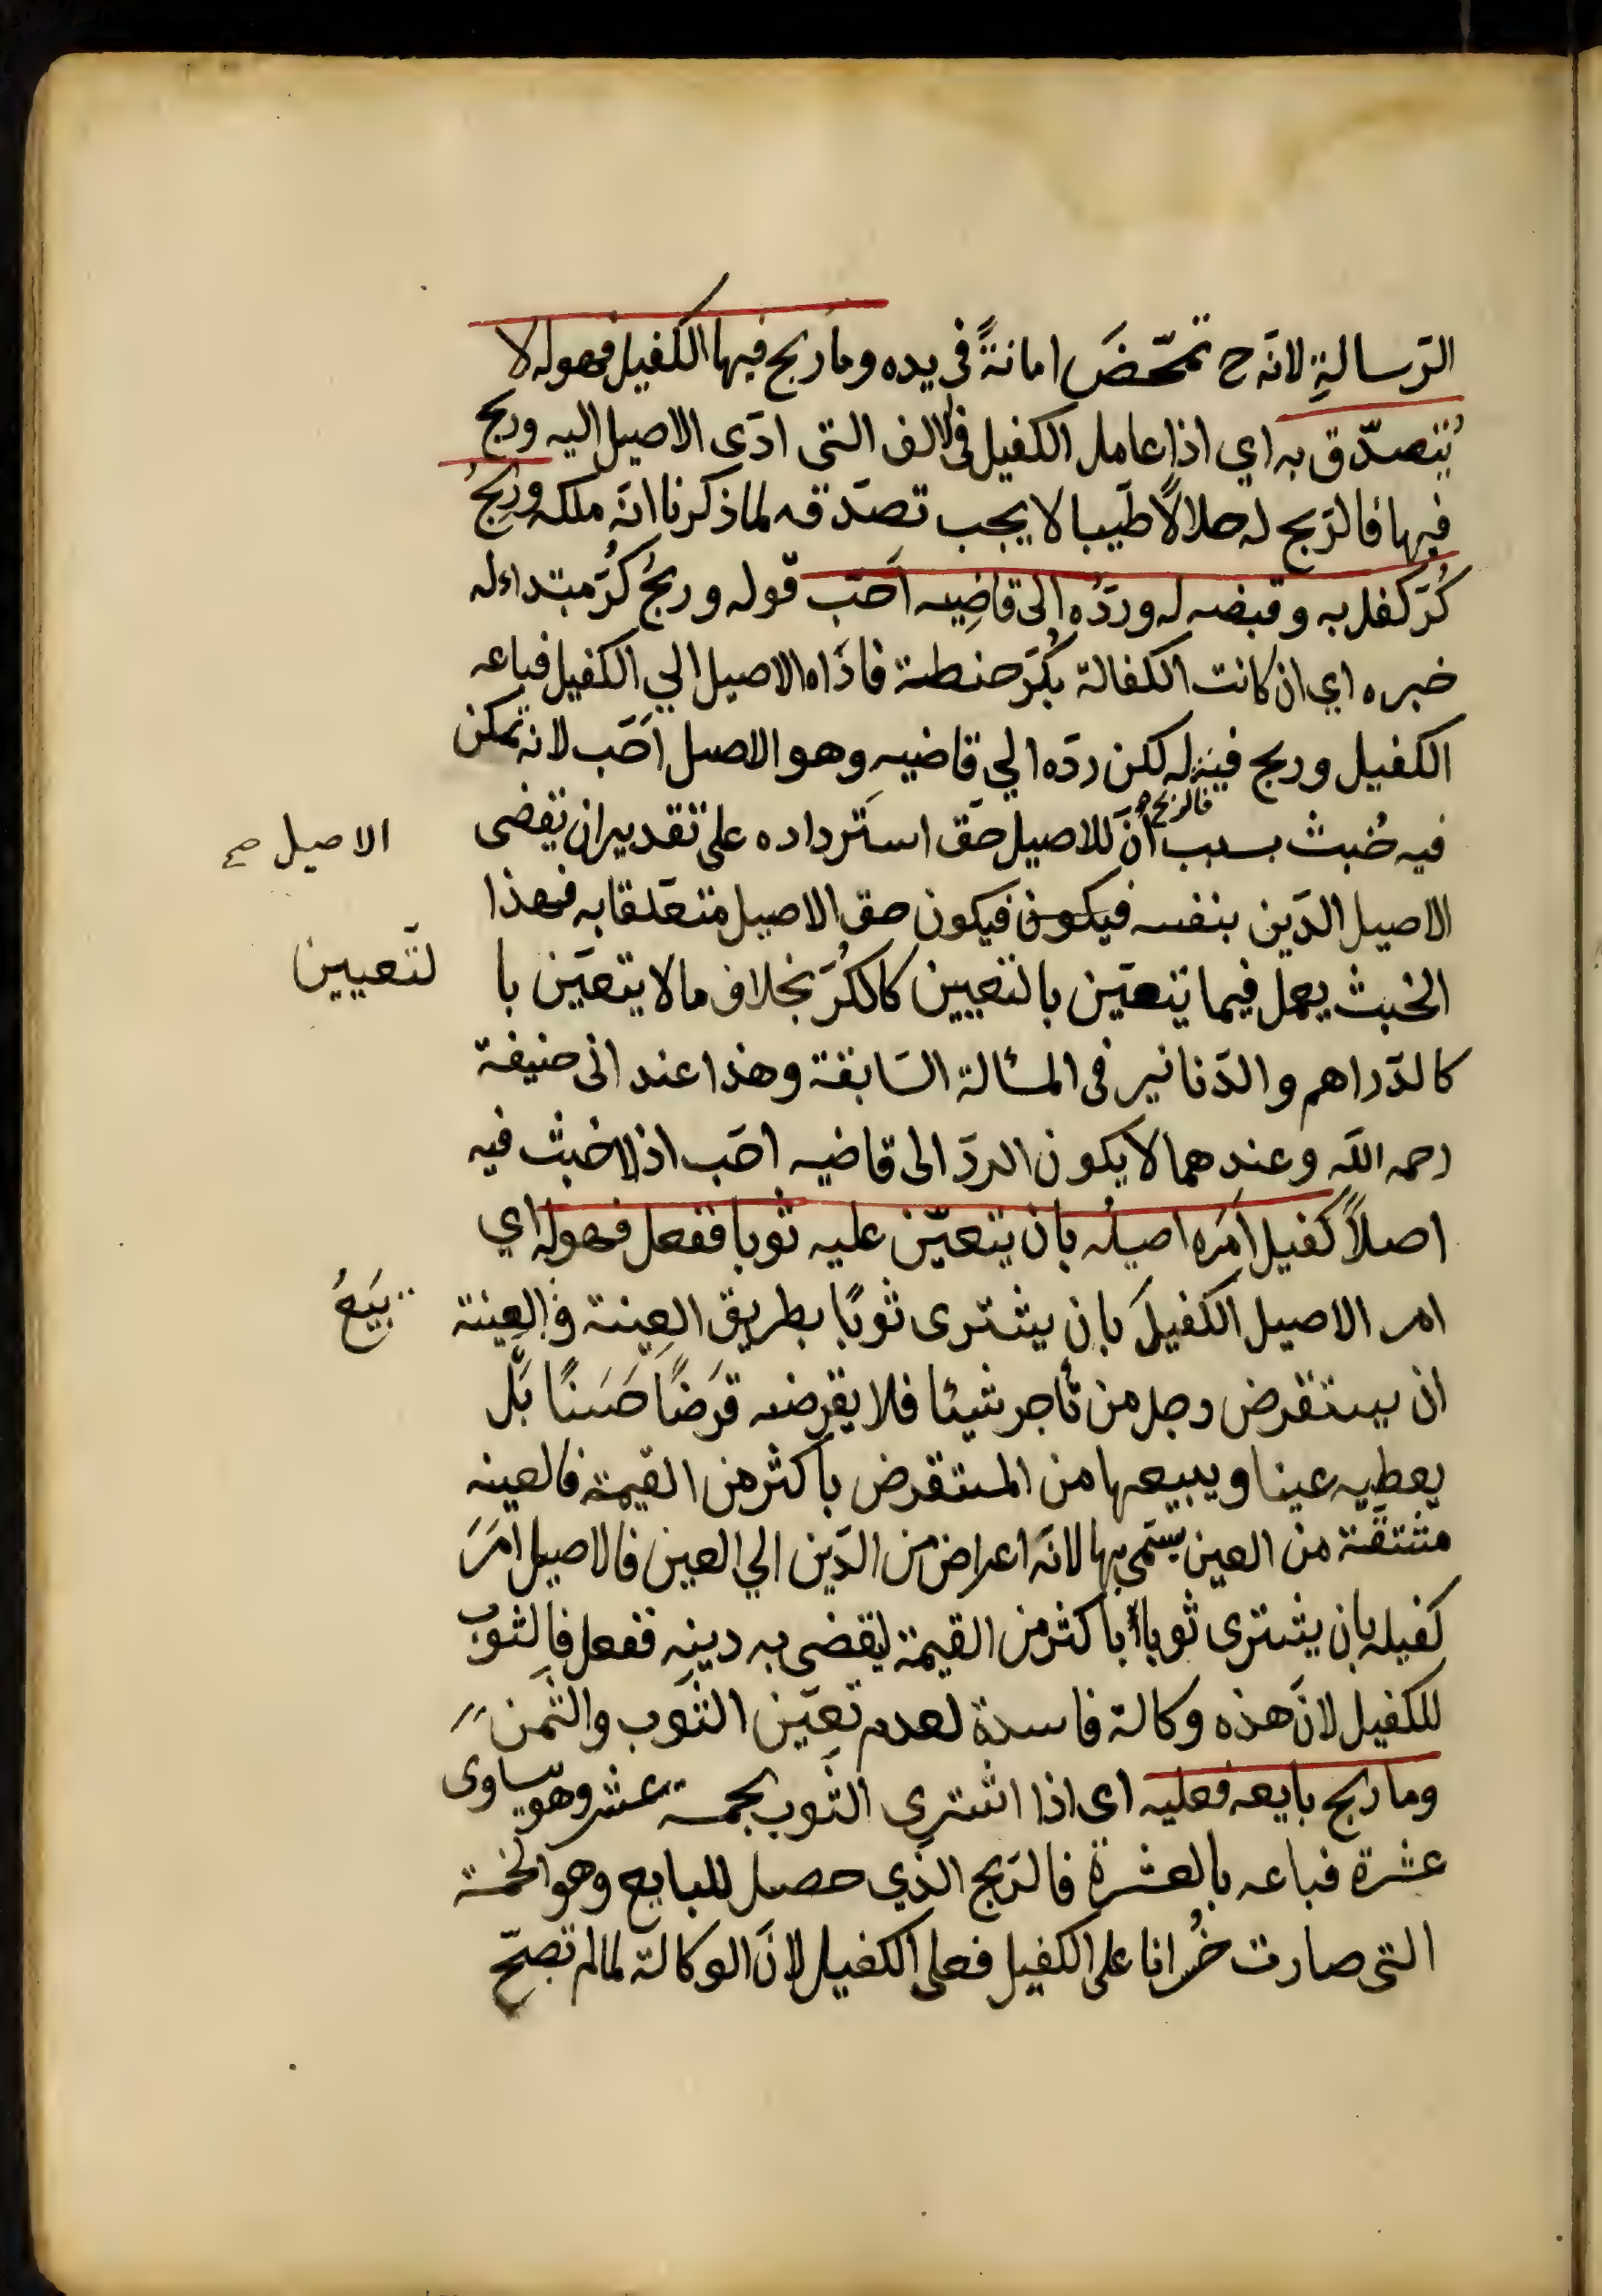 الرّسالةِ لانّه ح تمحّضَ امانةً فى يده وما ربح فيها الكفيل فهو له لا
يتصدّق به اي اذا عامل الكفيل فى الالف التى ادّى الاصيل اليه وربح
فيها فالرّبح له حلالًا طيّبا لا يجب تصدّقه لما ذكرنا انّه ملكه وربحُ
كُرّ كفل به وقبضه له وردّه الى قاضِيه احَبّ قوله وربحُ كُرّ مبتداء له
خبره اي ان كانت الكفالة بكُرّ حنطة فادّاه الاصيل الي الكفيل فباعه
الكفيل وربح فيه له لكن ردّه الي قاضيهِ وهو الاصل احَبّ لانه تمكن
فالربح
فيه خُبث بسبب انّ للاصيل حقّ استرداده على تقدير ان يقضى
الاصيل صح
الاصيل الدّين بنفسه فيكون فيكون حق الاصيل متعلّقا به فهذا
الخبث يعمل فيما يتعيّن بالتعيين كالكُرّ بخلاف ما لا يتعيّن با
لتّعيين
كالدّراهم والدّنانير فى المسئالة السّابقة وهذا عند ابى حنيفة
رحمه اللّه وعندهما لا يكون الردّ الى قاضيه احَب اذ لا خبث فيه
اصلاً كفيل امَره اصيلُه بان يتعيّن عليه ثوبا ففعل فهو له اي
امر الاصيل الكفيلَ بان يشترى ثوبًا بطريق العِينة والعِينة
بَيعُ
ان يستقرض رجل من تاجر شيئا فلا يقرضه قرَضًا حَسَنًا بَل
يعطيه عينا ويبيعها من المستقرض باكثر من القيمة فالعينه
مشتقّة من العين يسمّى بها لانّه اعراض من الدّين الي العين فالاصيل امَرَ
كفيله بان يشترى ثوبا باكثر من القيمة ليقضى به دينِه ففعل فالثوب
للكفيل لانّ هذه وكالة فاسدة لعدم تعيّن الثّوب والثّمن
وما ربح بايعه فعليه اى اذا اشترى الثّوب بخمسة عشر وهو يساوى
عشرة فباعه بالعشرة فالرّبح الذّي حصل للبايع وهو الخمسة
التى صارت خُسرانا على الكفيل فعلى الكفيل لانّ الوكالة لما لم تصحّ